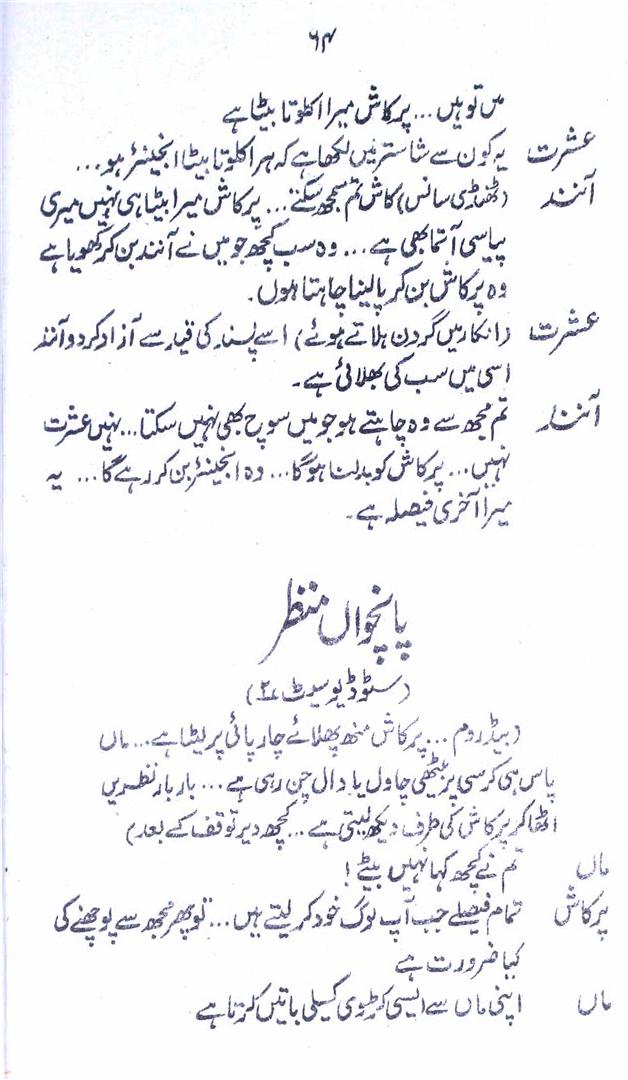 ۶۴
میں تو ہیں ... پرکاش میرا اکلوتا بیٹا ہے
عشرت یہ کون سے شاستر میں لکھا ہے کہ ہر اکلوتا بیٹا انجینئر ہو ...
آنند (ٹھنڈی سانس) کاش تم سمجھ سکتے ... پرکاش میرا بیٹا ہی نہیں میری
پیاسی آتما بھی ہے ... وہ سب کچھ جو میں نے آنند بن کر کھویا ہے
وہ پرکاش بن کر پالینا چاہتا ہوں۔
عشرت (انکار میں گردن ہلاتے ہوئے) اسے پسند کی قید سے آزاد کردو آنند
اسی میں سب کی بھلائی ہے۔
آنند تم مجھ سے وہ چاہتے ہو جو میں سوچ بھی نہیں سکتا ... نہیں عشرت
نہیں ... پرکاش کو بدلنا ہوگا ... وہ انجینئر بن کر رہے گا ... یہ
میرا آخری فیصلہ ہے۔
پانچواں منظر
(سٹوڈیو سیٹ ۲)
(بیڈ روم ... پرکاش منھ پھلائے چارپائی پر لیٹا ہے ... ماں
پاس ہی کرسی پر بیٹھی چاول یا دال چن رہی ہے ... بار بار نظریں
اٹھا کر پرکاش کی طرف دیکھ لیتی ہے ... کچھ دیر توقف کے بعد)
ماں تم نے کچھ کہا نہیں بیٹے !
پرکاش تمام فیصلے جب آپ لوگ خود کر لیتے ہیں ... تو پھر مجھ سے پوچھنے کی
کیا ضرورت ہے
ماں اپنی ماں سے ایسی کڑوی کسیلی باتیں کرتا ہے